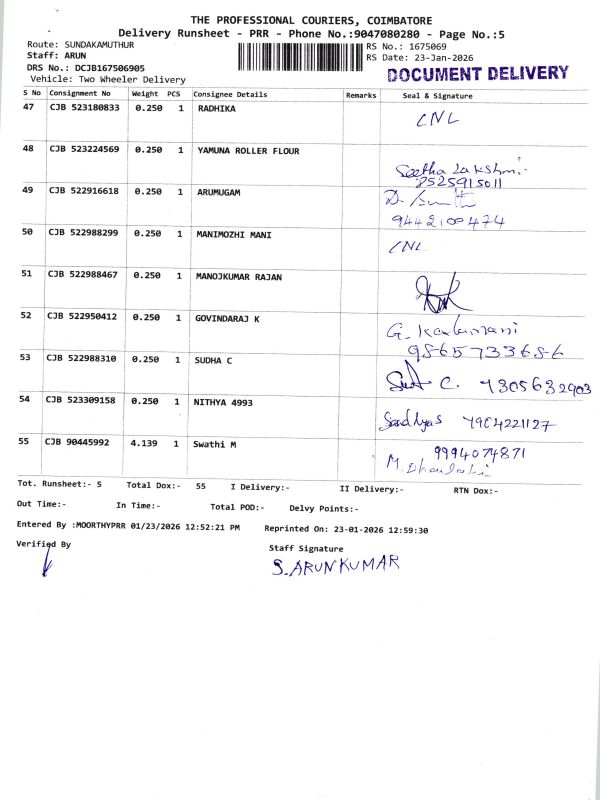 THE PROFESSIONAL COURIERS, COIMBATORE
Delivery Runsheet - PRR - Phone No.:9047080280 - Page No.:5
Route: SUNDAKAMUTHUR RS No.: 1675069
Staff: ARUN RS Date: 23-Jan-2026
DRS No.: DCJB167506905
Vehicle: Two Wheeler Delivery
DOCUMENT DELIVERY
S No Consignment No Weight PCS Consignee Details Remarks Seal & Signature
47 CJB 523180833 0.250 1 RADHIKA CNL
48 CJB 523224569 0.250 1 YAMUNA ROLLER FLOUR Seetha Lakshmi
8525915011
49 CJB 522916618 0.250 1 ARUMUGAM
9442100474
50 CJB 522988299 0.250 1 MANIMOZHI MANI CNL
51 CJB 522988467 0.250 1 MANOJKUMAR RAJAN
52 CJB 522950412 0.250 1 GOVINDARAJ K G.
9865733686
53 CJB 522988310 0.250 1 SUDHA C C. 7305632903
54 CJB 523309158 0.250 1 NITHYA 4993 7904221127
55 CJB 90445992 4.139 1 Swathi M 9994074871
M.
Tot. Runsheet:- 5 Total Dox:- 55 I Delivery:- II Delivery:- RTN Dox:-
Out Time:- In Time:- Total POD:- Delvy Points:-
Entered By :MOORTHYPRR 01/23/2026 12:52:21 PM Reprinted On: 23-01-2026 12:59:30
Verified By Staff Signature
S. ARUNKUMAR